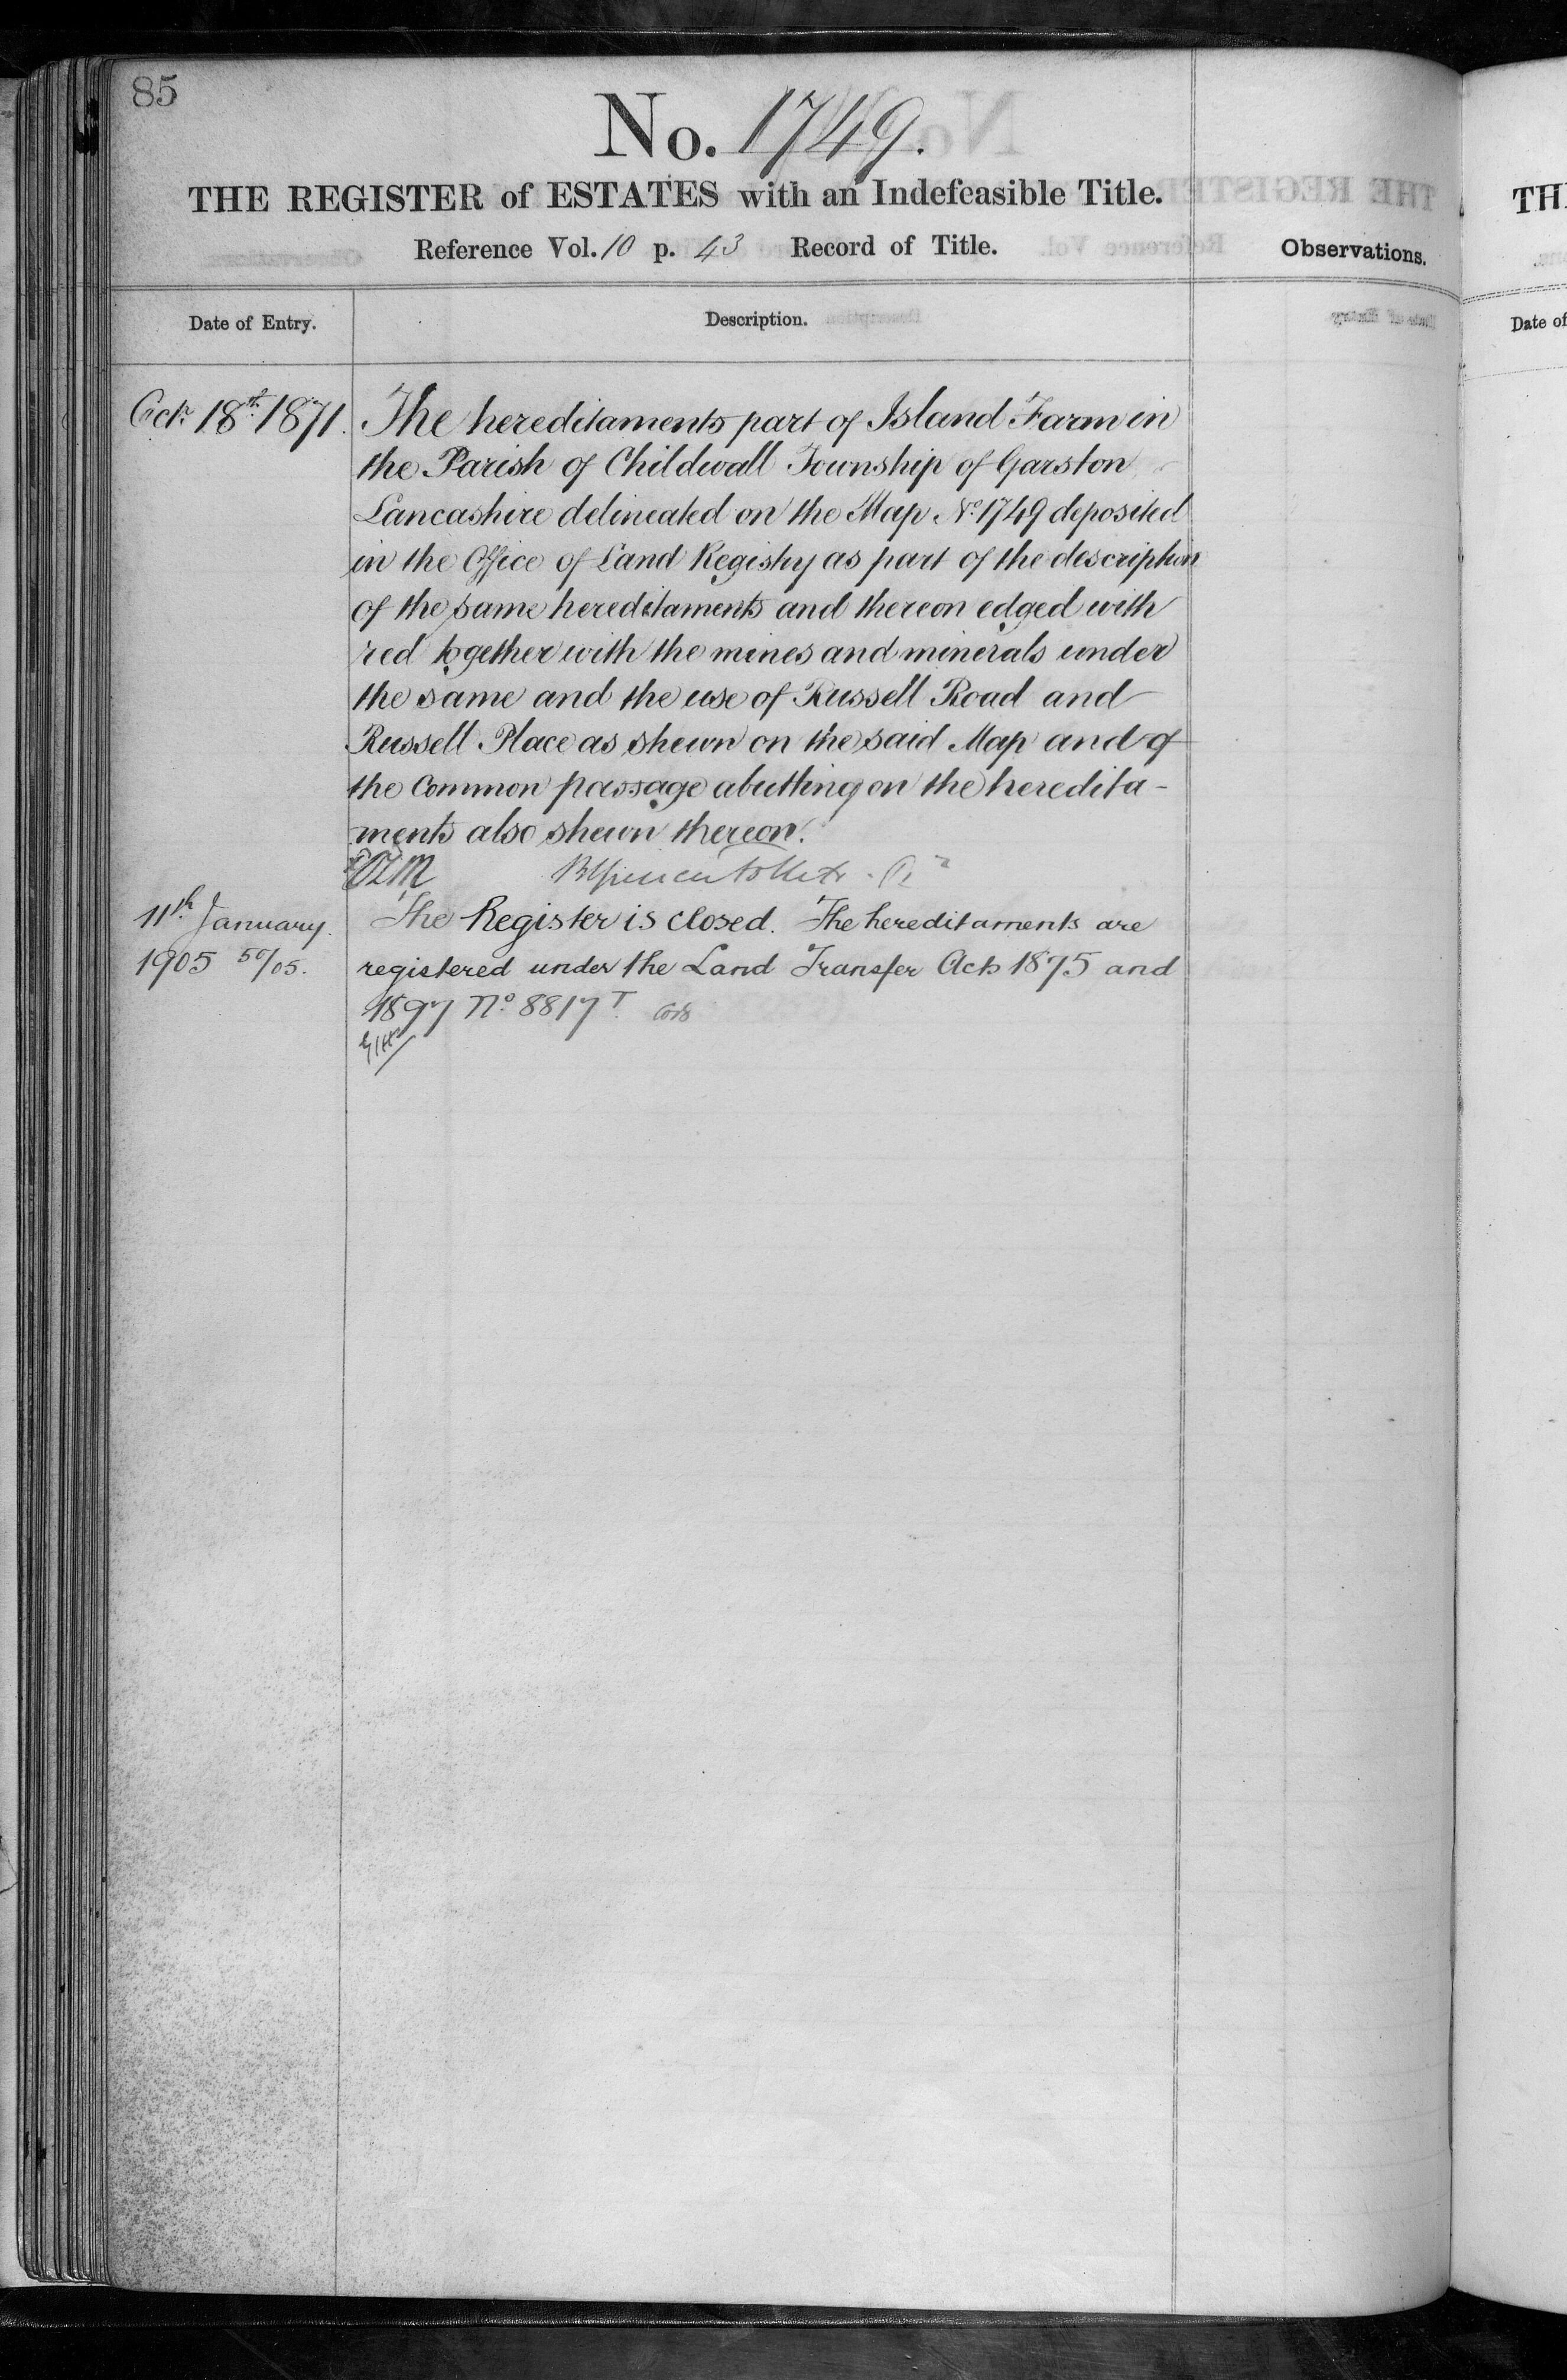 85
No. 1749.
THE REGISTER of ESTATES with an Indefeasible Title.
Reference Vol. 10 p. 43 Record of Title.
Observations.
Date of Entry.
Description.
Octr. 18th. 1871.
The hereditaments part of Island Farm in
the Parish of Childwall Township of Garston
Lancashire delineated on the Map No. 1749 deposited
in the Office of Land Registry as part of the description
of the same hereditaments and thereon edged with
red together with the mines and minerals under
the same and the use of Russell Road and
Russell Place as shewn on the said Map and of
the Common passage abutting on the heredita-
ments also shewn thereon.
11th. January.
1905 50/05.
The Register is closed. The hereditaments are
registered under the Land Transfer Acts 1875 and
1897 No. 8817 T.
TH
Date of